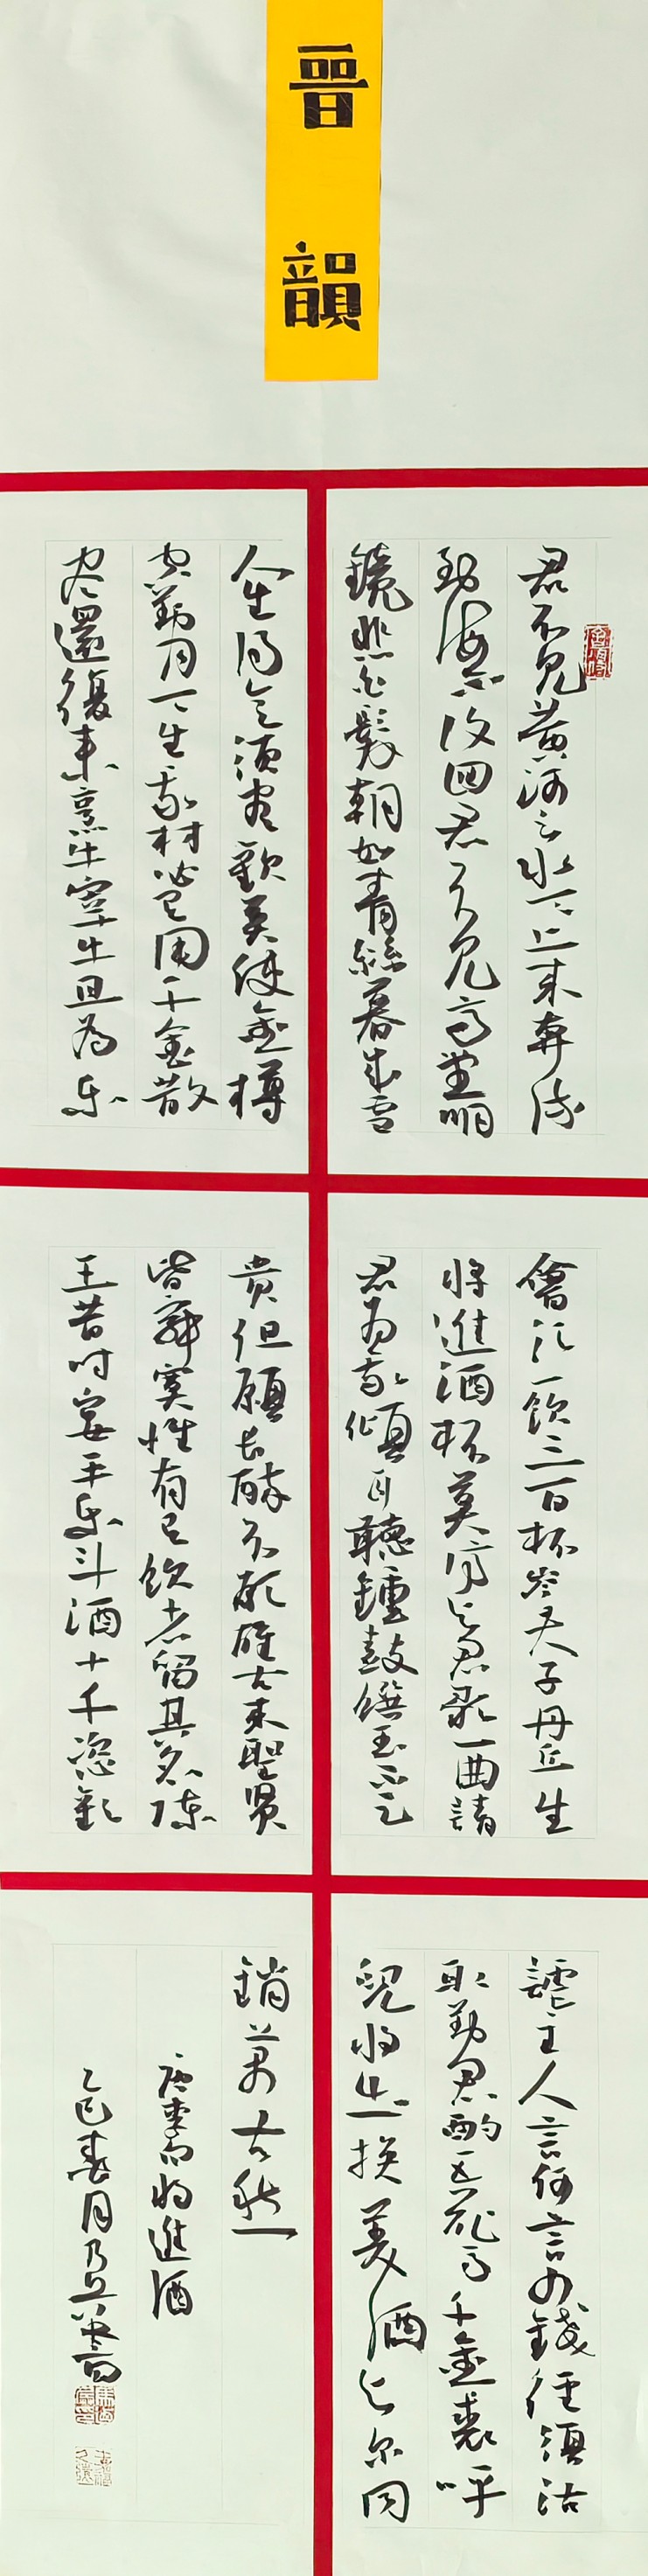 晉韻
君不見黃河之水天上来奔流
到海不復回君不見高堂明
鏡悲白髮朝如青絲暮成雪
人生得意須尽歡莫使金樽
空對月天生我材必有用千金散
尽還復来烹羊宰牛且为乐
會須一飲三百杯岑夫子丹丘生
将進酒杯莫停与君歌一曲請
君为我傾耳聽鐘鼓饌玉不足
贵但願长醉不願醒古来聖贤
皆寂寞惟有飲者留其名陳
王昔时宴平乐斗酒十千恣歡
謔主人言何言少錢徑須沽
取對君酌五花馬千金裘呼
兒将出换美酒与尔同
銷萬古愁
唐李白将進酒
乙巳春月書